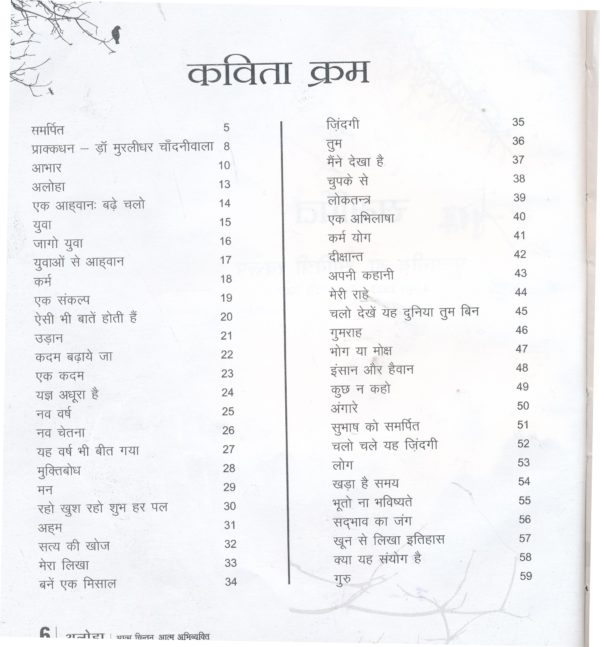 कविता क्रम
समर्पित 5
प्राक्कधन – ड़ॉ मुरलीधर चाँदनीवाला 8
आभार 10
अलोहा 13
एक आह्वानः बढ़े चलो 14
युवा 15
जागो युवा 16
युवाओं से आह्वान 17
कर्म 18
एक संकल्प 19
ऐसी भी बातें होती हैं 20
उड़ान 21
कदम बढ़ाये जा 22
एक कदम 23
यज्ञ अधूरा है 24
नव वर्ष 25
नव चेतना 26
यह वर्ष भी बीत गया 27
मुक्तिबोध 28
मन 29
रहो खुश रहो शुभ हर पल 30
अह्म 31
सत्य की खोज 32
मेरा लिखा 33
बनें एक मिसाल 34
ज़िंदगी 35
तुम 36
मैंने देखा है 37
चुपके से 38
लोकतन्त्र 39
एक अभिलाषा 40
कर्म योग 41
दीक्षान्त 42
अपनी कहानी 43
मेरी राहे 44
चलो देखें यह दुनिया तुम बिन 45
गुमराह 46
भोग या मोक्ष 47
इंसान और हैवान 48
कुछ न कहो 49
अंगारे 50
सुभाष को समर्पित 51
चलो चले यह ज़िंदगी 52
लोग 53
खड़ा है समय 54
भूतो ना भविष्यते 55
सद्भाव का जंग 56
खून से लिखा इतिहास 57
क्या यह संयोग है 58
गुरु 59
6 अलोहा आत्म चिन्तन आत्म अभिव्यक्ति